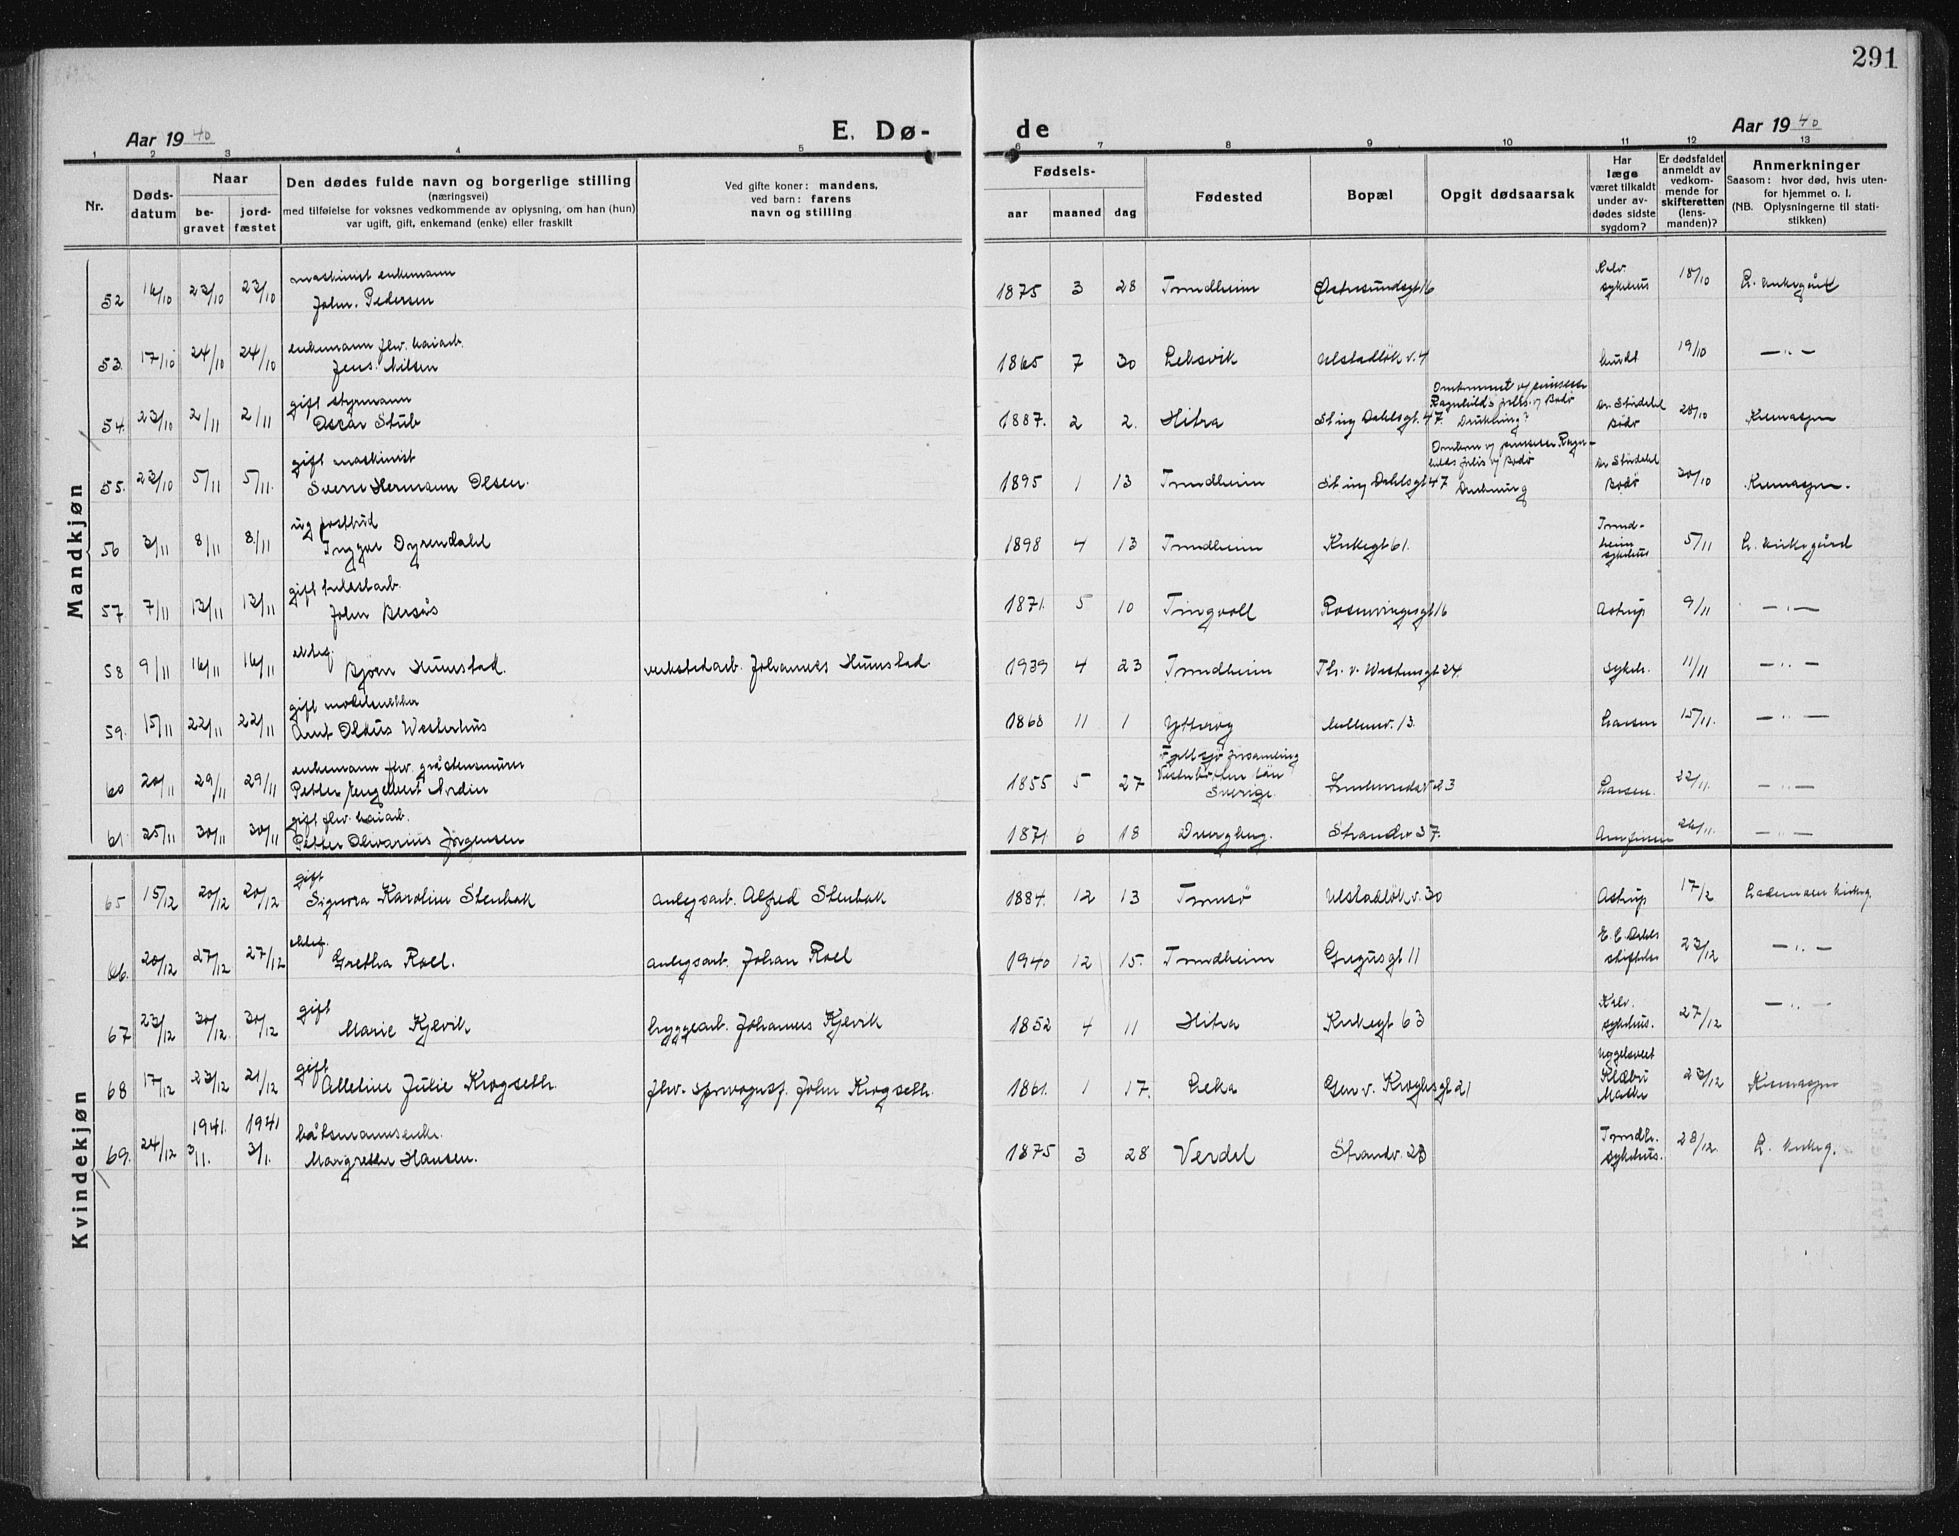 291
Aar 1940
E. Dø-
de
Aar 1940
1 2 3 4 5 6 7 8 9 10 11 12 13
Nr.
Døds-
datum
Naar
be-
gravet
jord-
fæstet
Den dødes fulde navn og borgerlige stilling
(næringsvei)
med tilføielse for voksnes vedkommende av oplysning, om han (hun)
var ugift, gift, enkemand (enke) eller fraskilt
Ved gifte koner: mandens,
ved barn: farens
navn og stilling
Fødsels-
aar maaned dag
Fødested
Bopæl
Opgit dødsaarsak
Har
læge
været tilkaldt
under av-
dødes sidste
sygdom?
Er dødsfaldet
anmeldt av
vedkom-
mende for
skifteretten
(lens-
manden)?
Anmerkninger
Saasom: hvor død, hvis uten-
for hjemmet o. l.
(NB. Oplysningerne til stati-
stikken)
Mandkjøn
maskinist enkemann
52 16/10 23/10 23/10 John. Pedersen 1875 3 28 Trondheim Østersundsgt 16 sykehus 18/10 L. kirkegård
enkemann fhv. kaiarb.
53. 17/10 24/10 24/10 Jens. Nilsen 1865 7 30 Leksvik Ulstadløk v. 4 19/10 —"—
gift styrmann
54. 23/10 2/11 2/11 Oscar Stub 1887. 2 2. Hitra Stiny Dahlsgt. 47. Drukning? Bodø 28/10 Kremasjon
gift maskinist
55. 23/10 5/11 5/11. Sverre Hermann Olsen. 1895 1 13 Trondheim Stiny Dahlsgt 47 Drukning Bodø 30/10 Kremasjon.
ug postbud
56 3/11 8/11 8/11 Dyrendahl 1898 4 13 Trondheim Kirkegt 61. Trond-
heim
sykehus 5/11 L. kirkegård
gift
57. 7/11 13/11 13/11 John Bersås 1871. 5 10 Tingvoll Rosenvingesgt 16 Astrup 9/11 —"—
ekteg.
58 9/11 16/11 16/11 Bjørn Hunstad. verkstedarb. Johannes Hunstad. 1939 4 23 Trondheim Th. v. Westensgt 24. sykeh. 11/11 —"—
gift modelsnekker
59. 15/11 22/11 22/11 Arnt Olaus Westerhus 1868 11 1 Ytterøy 13. Larsen 15/11. —"—
enkemann fhv. gråstensmurer
60 20/11 29/11 29/11 Petter Engelbert Nordin 1855 5 27 Sverige. 23 Larsen. 22/11. —"—
gift fhv. kaiarb.
61 25/11 30/11 30/11 Petter Olivarius Jørgensen 1871. 6 18 Dvergberg. Strandv 37. 26/11. —"—
Kvindekjøn
gift
65 15/12 20/12 20/12. Signora Karoline Stenbak anlegsarb. Alfred Stenbak 1884. 12 13 Tromsø Ulstadløk v. 30 Astrup 17/12 Lademoen kirkeg.
ekteg.
66. 20/12 27/12 27/12 Gretha Roel. anlegsarb. Johan Roel 1940 12 15. Trondheim Gregusgt 11 E. C. Dahls
stiftelse 23/12 —"—
gift
67 23/12 30/12 30/12 Marie Kjevik bryggearb. Johannes Kjevik 1852 4 11 Hitra Kirkegt 63 sykehus. 27/12 —"—
gift
68 17/12 23/12 21/12 Alletine Julie Krogseth. fhv. John Krogseth. 1861. 1 17. Leka Gen v. Kroghsgt 21 Klæbu 23/12 Kremasjon
1941. 1941 båtsmannsenke.
69. 24/12 3/1. 3/1. Margrethe Hansen. 1875 3 28 Verdal Strandv. 23 Trondh.
sykehus. 28/12. L. kirkeg.